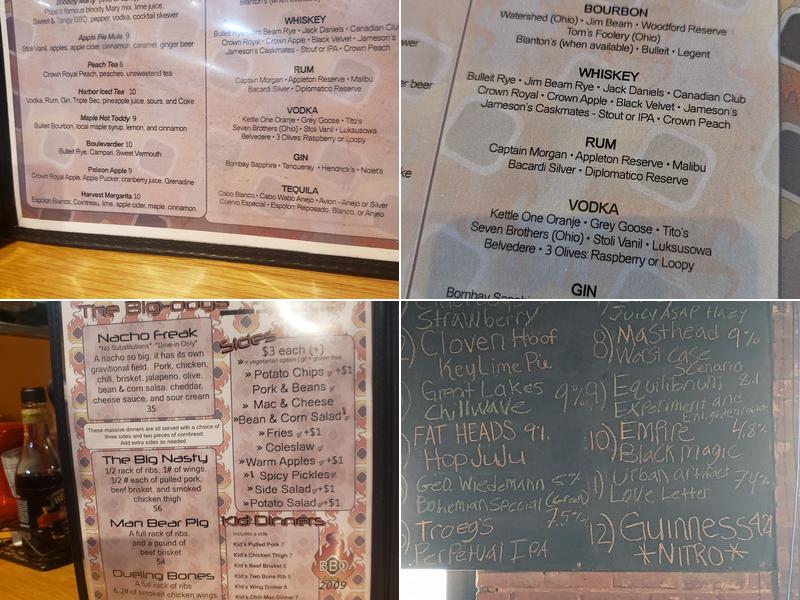 Bloody Marty
Pope's famous bloody Mary mix, lime juice,
Sweet & Tangy BBQ, pepper, vodka, cocktail skewer
Apple Pie Mule 9
Stoli Vanil, apples, apple cider, cinnamon, caramel, ginger beer
Peach Tea 8
Crown Royal Peach, peaches, unsweetend tea
Harbor Iced Tea 10
Vodka, Rum, Gin, Triple Sec, pineapple juice, sours, and Coke
Maple Hot Toddy 9
Bulleit Bourbon, local maple syrup, lemon, and cinnamon
Boulevardier 10
Bulleit Rye, Campari, Sweet Vermouth
Poison Apple 9
Crown Royal Apple, Apple Pucker, cranberry juice, Grenadine
Harvest Margarita 10
Espolon Blanco, Cointreau, lime, apple cider, maple, cinnamon
Blanton's (when available)
WHISKEY
Bulleit Rye • Jim Beam Rye • Jack Daniels • Canadian Clu
Crown Royal • Crown Apple • Black Velvet • Jameson's
Jameson's Caskmates - Stout or IPA • Crown Peach
RUM
Captain Morgan • Appleton Reserve • Malibu
Bacardi Silver • Diplomatico Reserve
VODKA
Kettle One Oranje • Grey Goose • Tito's
Seven Brothers (Ohio) • Stoli Vanil • Luksusowa
Belvedere • 3 Olives: Raspberry or Loopy
GIN
Bombay Sapphire • Tanqueray • Hendrick's • Nolet's
TEQUILA
Cabo Blanco • Cabo Wabo Anejo • Avion - Anejo or Silver
Cuervo Especial • Espolon: Reposado, Blanco, or Anjeo
BOURBON
Watershed (Ohio) • Jim Beam • Woodford Reserve
Tom's Foolery (Ohio)
Blanton's (when available) • Bulleit • Legent
WHISKEY
Bulleit Rye • Jim Beam Rye • Jack Daniels • Canadian Club
Crown Royal • Crown Apple • Black Velvet • Jameson's
Jameson's Caskmates - Stout or IPA • Crown Peach
RUM
Captain Morgan • Appleton Reserve • Malibu
Bacardi Silver • Diplomatico Reserve
VODKA
Kettle One Oranje • Grey Goose • Tito's
Seven Brothers (Ohio) • Stoli Vanil • Luksusowa
Belvedere • 3 Olives: Raspberry or Loopy
GIN
Bombay
er beer
ke
The Big-Guys
Nacho Freak
*No Substitutions* *Dine-in Only*
A nacho so big, it has its own
gravitional field. Pork, chicken,
chili, brisket, jalapeno, olive,
bean & corn salsa, cheddar,
cheese sauce, and sour cream
35
These massive dinners are all served with a choice of
three sides and two pieces of cornbread.
Add extra sides as needed.
The Big Nasty
1/2 rack of ribs, 1# of wings,
1/2 # each of pulled pork,
beef brisket, and smoked
chicken thigh
56
Man Bear Pig
A full rack of ribs
and a pound of
beef brisket
54
Dueling Bones
A full rack of ribs
& 2# of smoked chicken wings
Sides
$3 each (+)
» = vegetarian option | gf = gluten free
» Potato Chips gf +$1
Pork & Beans gf
» Mac & Cheese
» Bean & Corn Salad gf
» Fries gf +$1
» Coleslaw gf
» Warm Apples gf +$1
» Spicy Pickles gf
» Side Salad gf +$1
» Potato Salad gf +$1
Kid Dinners
Includes a side
Kid's Pulled Pork 7
Kid's Chicken Thigh 7
Kid's Beef Brisket 8
Kid's Two Bone Rib 8
Kid's Wing Dinner 8
Kid's Chili-Mac Dinner 7
BBQ
2009
Strawberry
Cloven Hoof
Key Lime Pie
Great Lakes 9%
Chillwave
FAT HEADS 9%
Hop JuJu
Geo. Wiedemann 5%
Bohemian Special (Green)
Troegs 7.5%
Perpetual IPA
Juicy ASAP Hazy
8) Masthead 9%
Worst Case
Scenario
9) Equilibrium 8.1
Experiment and
Enlightenment
10) Empire 4.8%
Black magic
Urban artifact 7.4%
Love Letter
12) Guinness 4.2
*NITRO*